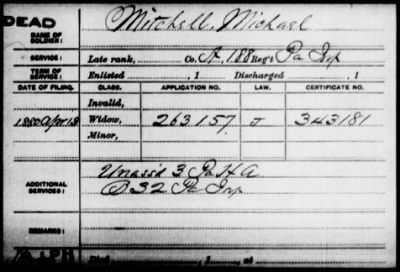 DEAD
NAME OF SOLDIER: Mitchell, Michael
SERVICE: Late rank, Co. A, 188 Reg't Pa Inf
TERM OF SERVICE: Enlisted , 1 Discharged , 1
DATE OF FILING. CLASS. APPLICATION NO. LAW. CERTIFICATE NO.
Invalid,
1880 Apr 13 Widow, 263157 J 343181
Minor,
ADDITIONAL SERVICES: Unass'd 3 Pa H A
32 Pa Inf
REMARKS:
, 1 , at